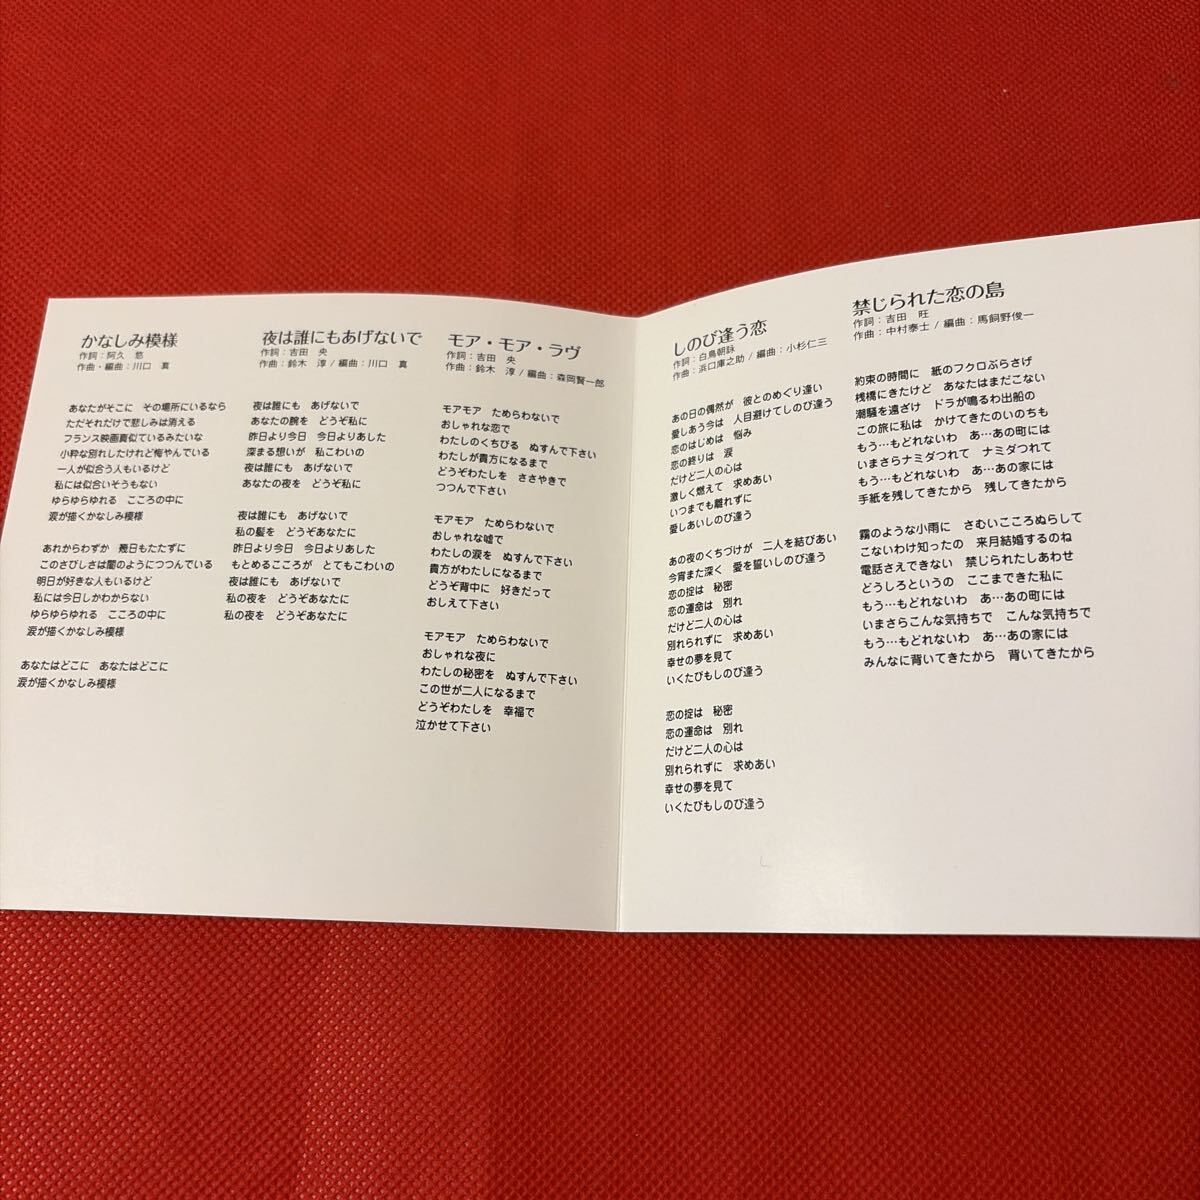 かなしみ模様
作詞：阿久 悠
作曲・編曲：川口 真
あなたがそこに その場所にいるなら
ただそれだけで悲しみは消える
フランス映画真似ているみたいな
小粋な別れしたけれど悔やんでいる
一人が似合う人もいるけど
私には似合いそうもない
ゆらゆらゆれる こころの中に
涙が描くかなしみ模様
あれからわずか 幾日もたたずに
このさびしさは闇のようにつつんでいる
明日が好きな人もいるけど
私には今日しかわからない
ゆらゆらゆれる こころの中に
涙が描くかなしみ模様
あなたはどこに あなたはどこに
涙が描くかなしみ模様
夜は誰にもあげないで
作詞：吉田 央
作曲：鈴木 淳 / 編曲：川口 真
夜は誰にも あげないで
あなたの腕を どうぞ私に
昨日より今日 今日よりあした
深まる想いが 私こわいの
夜は誰にも あげないで
あなたの夜を どうぞ私に
夜は誰にも あげないで
私の髪を どうぞあなたに
昨日より今日 今日よりあした
もとめるこころが とてもこわいの
夜は誰にも あげないで
私の夜を どうぞあなたに
私の夜を どうぞあなたに
モア・モア・ラヴ
作詞：吉田 央
作曲：鈴木 淳 / 編曲：森岡賢一郎
モアモア ためらわないで
おしゃれな恋で
わたしのくちびる ぬすんで下さい
わたしが貴方になるまで
どうぞわたしを ささやきで
つつんで下さい
モアモア ためらわないで
おしゃれな嘘で
わたしの涙を ぬすんで下さい
貴方がわたしになるまで
どうぞ背中に 好きだって
おしえて下さい
モアモア ためらわないで
おしゃれな夜に
わたしの秘密を ぬすんで下さい
この世が二人になるまで
どうぞわたしを 幸福で
泣かせて下さい
しのび逢う恋
作詞：白鳥朝詠
作曲：浜口庫之助 / 編曲：小杉仁三
あの日の偶然が 彼とのめぐり逢い
愛しあう今は 人目避けてしのび逢う
恋のはじめは 悩み
恋の終りは 涙
だけど二人の心は
激しく燃えて 求めあい
いつまでも離れずに
愛しあいしのび逢う
あの夜のくちづけが 二人を結びあい
今宵また深く 愛を誓いしのび逢う
恋の掟は 秘密
恋の運命は 別れ
だけど二人の心は
別れられずに 求めあい
幸せの夢を見て
いくたびもしのび逢う
恋の掟は 秘密
恋の運命は 別れ
だけど二人の心は
別れられずに 求めあい
幸せの夢を見て
いくたびもしのび逢う
禁じられた恋の島
作詞：吉田 旺
作曲：中村泰士 / 編曲：馬飼野俊一
約束の時間に 紙のフクロぶらさげ
桟橋にきたけど あなたはまだこない
潮騒を遠ざけ ドラが鳴るわ出船の
この旅に私は かけてきたのいのちも
もう…もどれないわ あ…あの町には
いまさらナミダつれて ナミダつれて
もう…もどれないわ あ…あの家には
手紙を残してきたから 残してきたから
霧のような小雨に さむいこころぬらして
こないわけ知ったの 来月結婚するのね
電話さえできない 禁じられたしあわせ
どうしろというの ここまできた私に
もう…もどれないわ あ…あの町には
いまさらこんな気持ちで こんな気持ちで
もう…もどれないわ あ…あの家には
みんなに背いてきたから 背いてきたから